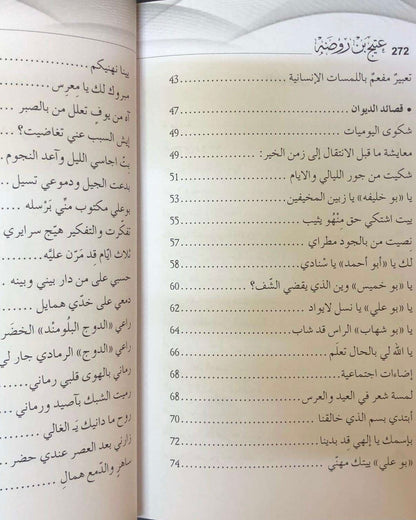 272 عتيج بن روضة
تعبيرٌ مفعمٌ باللمسات الإنسانية ........ 43
• قصائد الديوان ........ 47
شكوى اليوميات ........ 49
معايشة ما قبل الانتقال إلى زمن الخير: ........ 49
شكيت من جور الليالي والايام ........ 51
يا «بو خليفه» يا زبين المخيفين ........ 53
بيت اشتكي حق منْهُو يثيب ........ 55
نَصيت من بالجود مطراي ........ 57
لك يا «أبو أحمد» يا سْنادي ........ 58
يا «بو خميس» وين الذي يقضي الشّف؟ ........ 60
يا «بو علي» يا نسل لايواد ........ 62
يا «بو شهاب» الراس قد شاب ........ 64
يا الله لي بالحال تعلَم ........ 66
إضاءات اجتماعية. ........ 68
لمسة شعر في العيد والعرس ........ 68
أبتدي بسم الذي خالقنا ........ 70
بإسمك يا إلهي قِد بدينا ........ 72
«بو علي» بيتك مهنّي ........ 74
يينا نهنيكم ........
مبروك لك يا معِرس ........
آه من يوفٍ تعلل من بالصبر ........
إيش السبب عني تغاضيت؟ ........
بِتْ اجاسي الليل وآعد النجوم ........
بدعت الجيل ودموعي تسيل ........
بوعلي مكتوب منّي بَرْسله ........
تفكّرت والتفكير هيّج سرايري ........
ثلاث ايّام قِد مَرّن عليّه ........
حسبي على من دار بيني وبينه ........
دمعي على خدّي همايل ........
راعي «الدوج البلُومنْد» الخضَر
راعي «الدوج» الرمادي جار لي
رماني بالهوى قلبي رماني ........
رميت الشبك بآصيد ورماني ........
روح ما دانيك يـه الغالي ........
زارني بعد العصر عندي حضر ........
ساهرٍ والدّمع همالِ ........